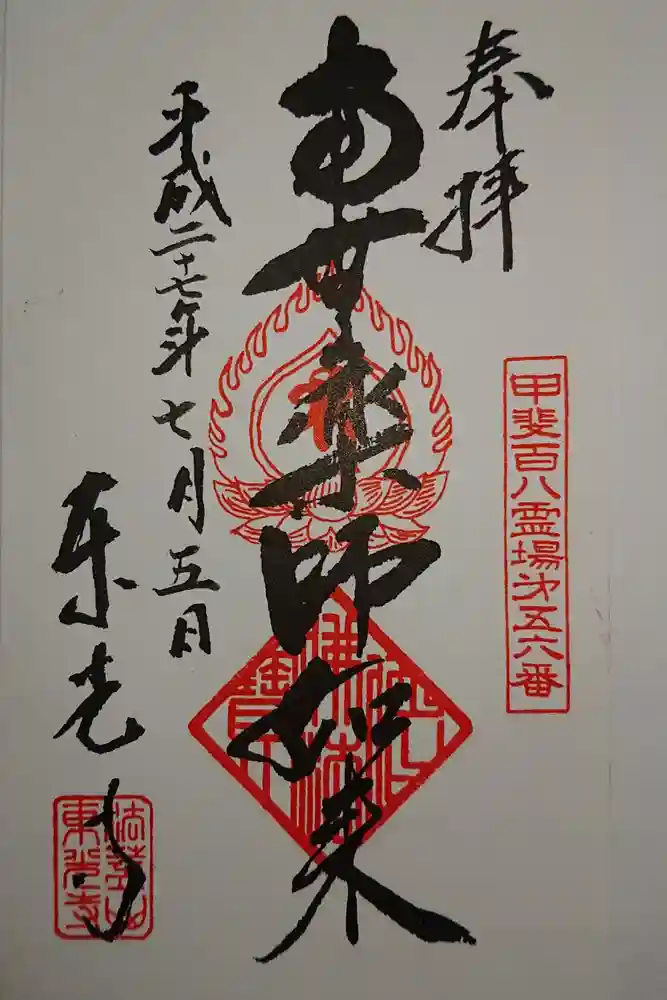 奉拝
甲斐百八霊場第五六番
南無薬師如来
平成二十七年七月五日
東光寺
法蓋山
東光寺